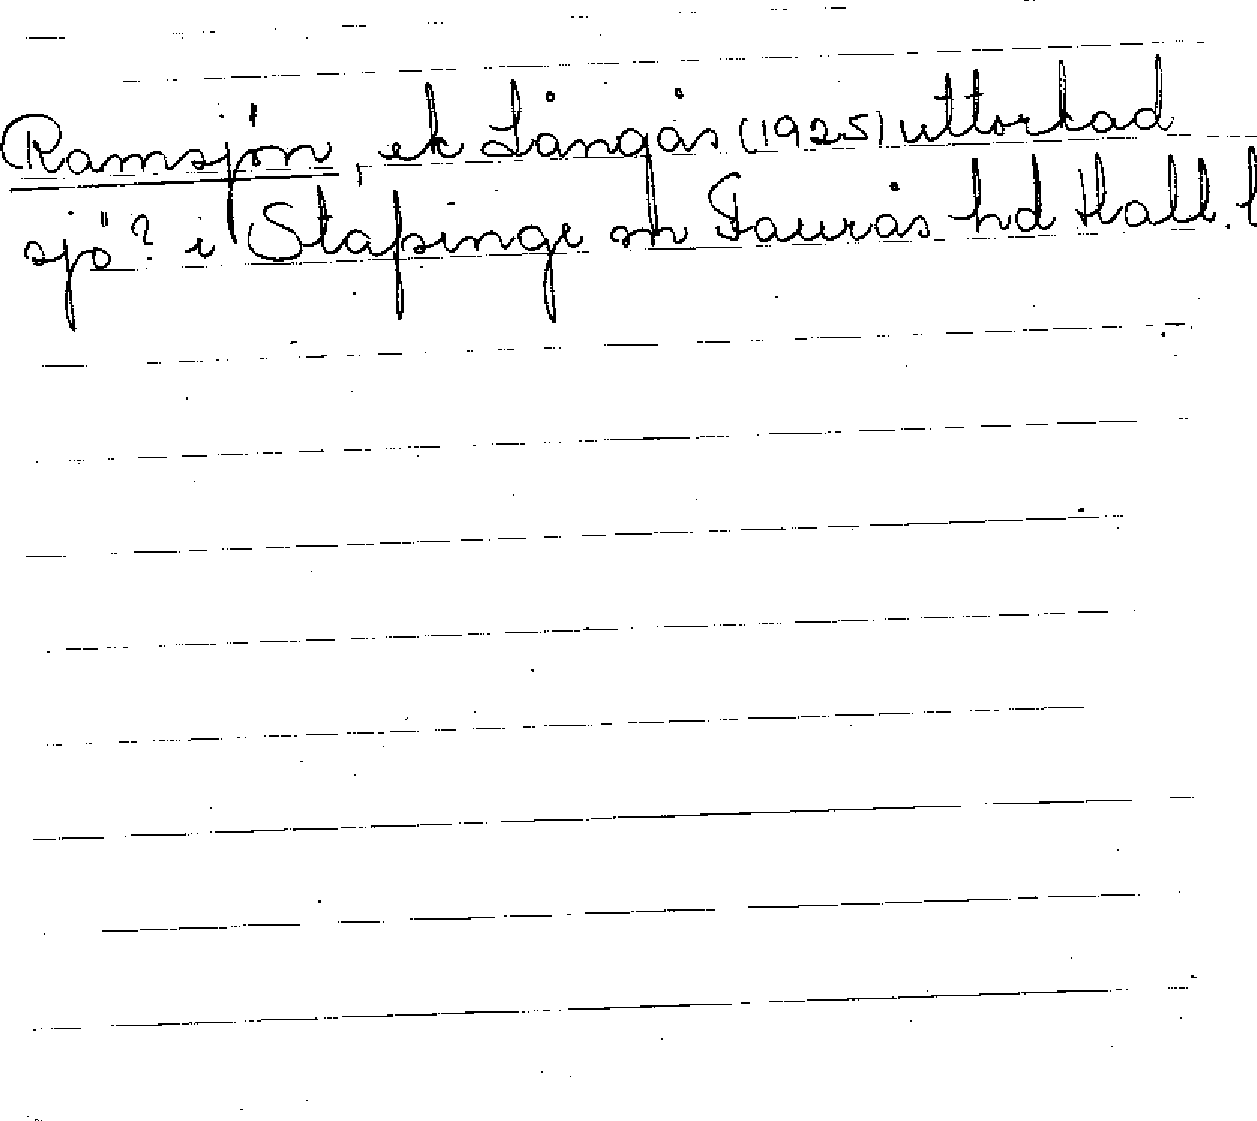 Ramsjön, ek Långås (1925) uttorkad
sjö? i Stafsinge sn Faurås hd Hall. l